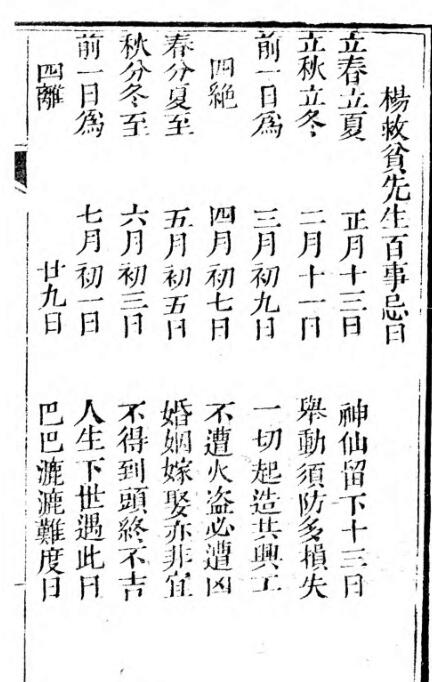 楊救貧先生百事忌日
立春立夏 正月十三日 神仙留下十三日
立秋立冬 二月十一日 舉動須防多損失
前一日爲 三月初九日 一切起造共興工
四絶 四月初七日 不遭火盗必遭凶
春分夏至 五月初五日 婚姻嫁娶亦非宜
秋分冬至 六月初三日 不得到頭終不吉
前一日爲 七月初一日 人生下世遇此日
四離 廿九日 巴巴漉漉難度日